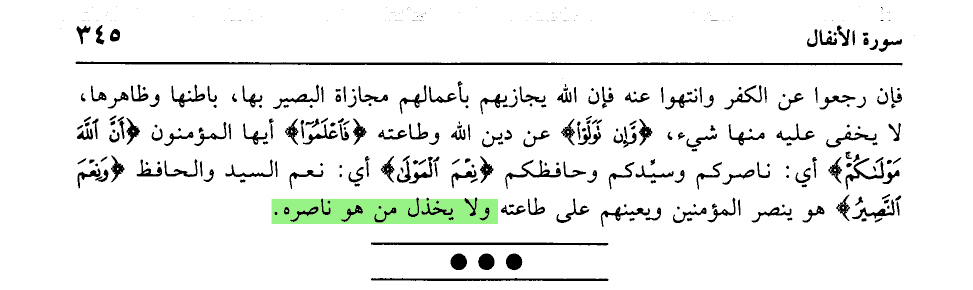 سورة الأنفال ٣٤٥
فإن رجعوا عن الكفر وانتهوا عنه فإن الله يجازيهم بأعمالهم مجازاة البصير بها، باطنها وظاهرها،
لا يخفى عليه منها شيء، ﴿وَإِن تَوَلَّوْا۟﴾ عن دين الله وطاعته ﴿فَٱعْلَمُوٓا۟﴾ أيها المؤمنون ﴿أَنَّ ٱللَّهَ
مَوْلَىٰكُمْ﴾ أي: ناصركم وسيِّدكم وحافظكم ﴿نِعْمَ ٱلْمَوْلَىٰ﴾ أي: نعم السيد والحافظ ﴿وَنِعْمَ
ٱلنَّصِيرُ﴾ هو ينصر المؤمنين ويعينهم على طاعته ولا يخذل من هو ناصره.